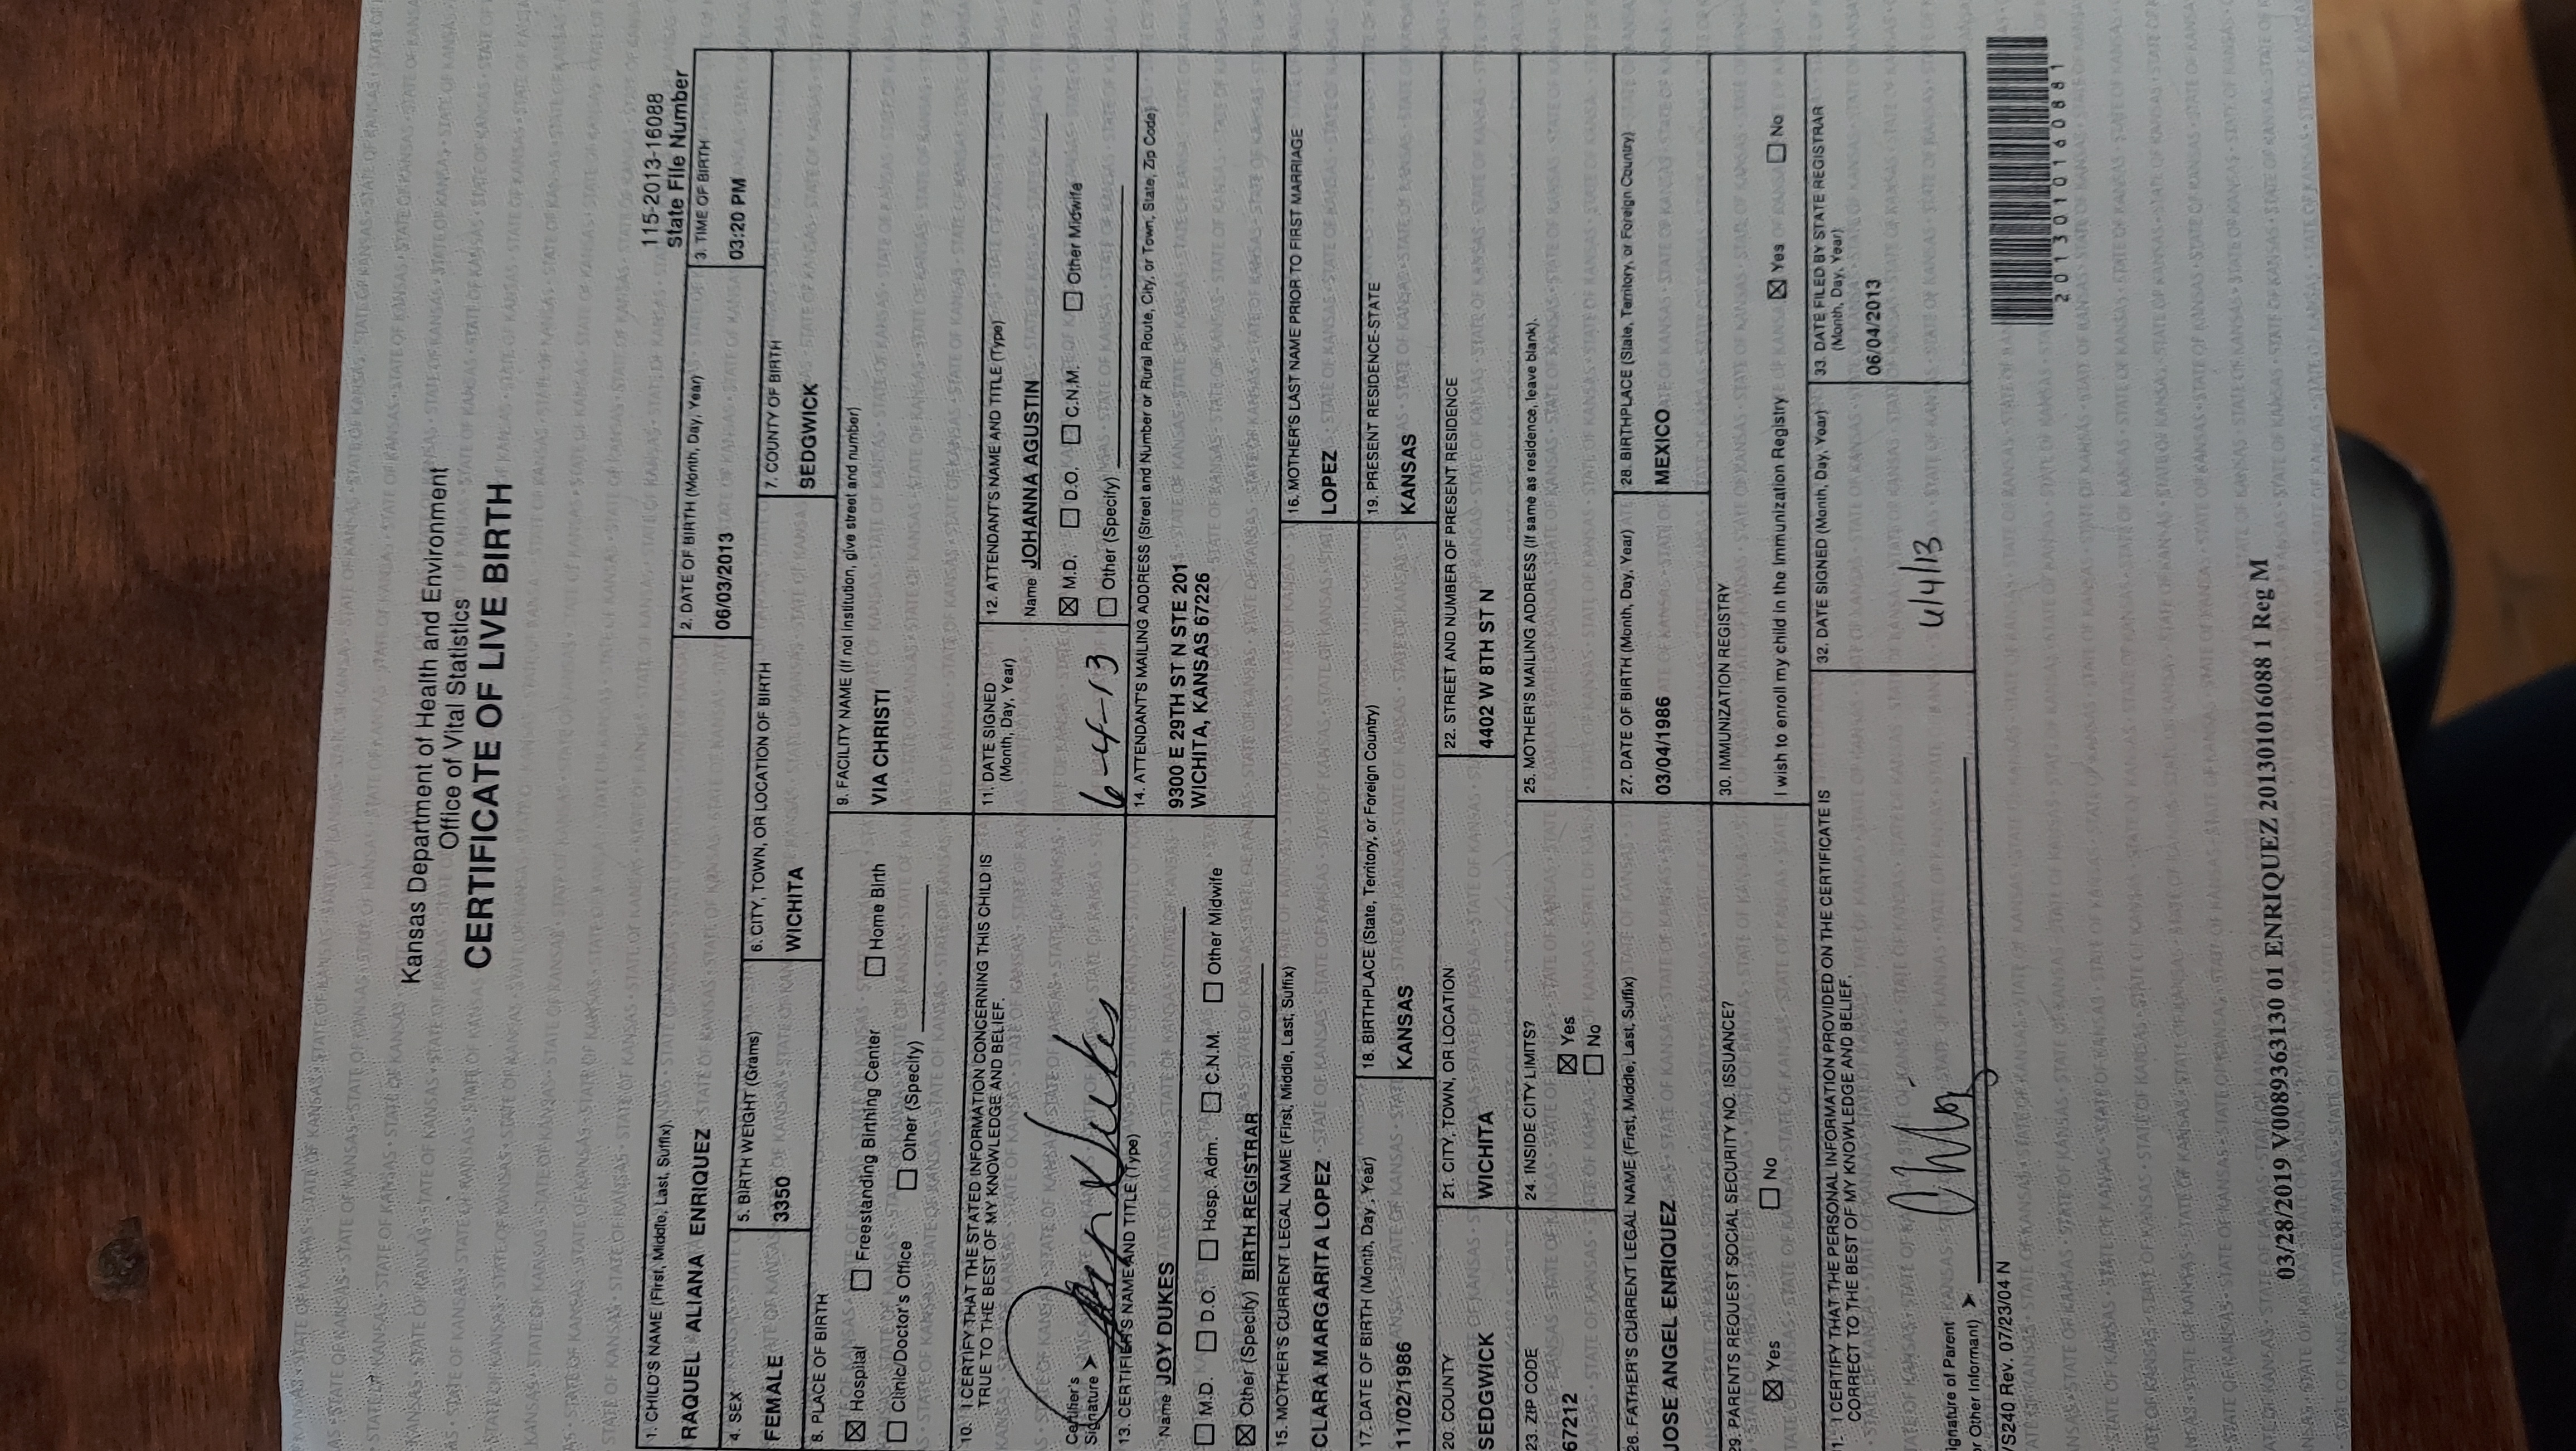 Kansas Department of Health and Environment
Office of Vital Statistics
CERTIFICATE OF LIVE BIRTH
115-2013-16088
State File Number
1. CHILD'S NAME (First, Middle, Last, Suffix)
RAQUEL ALIANA ENRIQUEZ
2. DATE OF BIRTH (Month, Day, Year)
06/03/2013
3. TIME OF BIRTH
03:20 PM
4. SEX
FEMALE
5. BIRTH WEIGHT (Grams)
3350
6. CITY, TOWN, OR LOCATION OF BIRTH
WICHITA
7. COUNTY OF BIRTH
SEDGWICK
8. PLACE OF BIRTH
☒ Hospital ☐ Freestanding Birthing Center ☐ Home Birth
☐ Clinic/Doctor's Office ☐ Other (Specify)
9. FACILITY NAME (If not institution, give street and number)
VIA CHRISTI
10. I CERTIFY THAT THE STATED INFORMATION CONCERNING THIS CHILD IS
TRUE TO THE BEST OF MY KNOWLEDGE AND BELIEF.
Certifier's
Signature ➤
11. DATE SIGNED
(Month, Day, Year)
6-4-13
12. ATTENDANT'S NAME AND TITLE (Type)
Name JOHANNA AGUSTIN
☒ M.D. ☐ D.O. ☐ C.N.M. ☐ Other Midwife
☐ Other (Specify)
13. CERTIFIER'S NAME AND TITLE (Type)
Name JOY DUKES
☐ M.D. ☐ D.O. ☐ Hosp. Adm. ☐ C.N.M. ☐ Other Midwife
☒ Other (Specify) BIRTH REGISTRAR
14. ATTENDANT'S MAILING ADDRESS (Street and Number or Rural Route, City, or Town, State, Zip Code)
9300 E 29TH ST N STE 201
WICHITA, KANSAS 67226
15. MOTHER'S CURRENT LEGAL NAME (First, Middle, Last, Suffix)
CLARA MARGARITA LOPEZ
16. MOTHER'S LAST NAME PRIOR TO FIRST MARRIAGE
LOPEZ
17. DATE OF BIRTH (Month, Day, Year)
11/02/1986
18. BIRTHPLACE (State, Territory, or Foreign Country)
KANSAS
19. PRESENT RESIDENCE-STATE
KANSAS
20. COUNTY
SEDGWICK
21. CITY, TOWN, OR LOCATION
WICHITA
22. STREET AND NUMBER OF PRESENT RESIDENCE
4402 W 8TH ST N
23. ZIP CODE
67212
24. INSIDE CITY LIMITS?
☒ Yes
☐ No
25. MOTHER'S MAILING ADDRESS (If same as residence, leave blank).
26. FATHER'S CURRENT LEGAL NAME (First, Middle, Last, Suffix)
JOSE ANGEL ENRIQUEZ
27. DATE OF BIRTH (Month, Day, Year)
03/04/1986
28. BIRTHPLACE (State, Territory, or Foreign Country)
MEXICO
29. PARENTS REQUEST SOCIAL SECURITY NO. ISSUANCE?
☒ Yes ☐ No
30. IMMUNIZATION REGISTRY
I wish to enroll my child in the Immunization Registry ☒ Yes ☐ No
1- I CERTIFY THAT THE PERSONAL INFORMATION PROVIDED ON THE CERTIFICATE IS
CORRECT TO THE BEST OF MY KNOWLEDGE AND BELIEF.
ignature of Parent
r Other Informant) ➤
32. DATE SIGNED (Month, Day, Year)
6/4/13
33. DATE FILED BY STATE REGISTRAR
(Month, Day, Year)
06/04/2013
VS240 Rev. 07/23/04 N
2013010160881
03/28/2019 V0089363130 01 ENRIQUEZ 2013010160881 Reg M